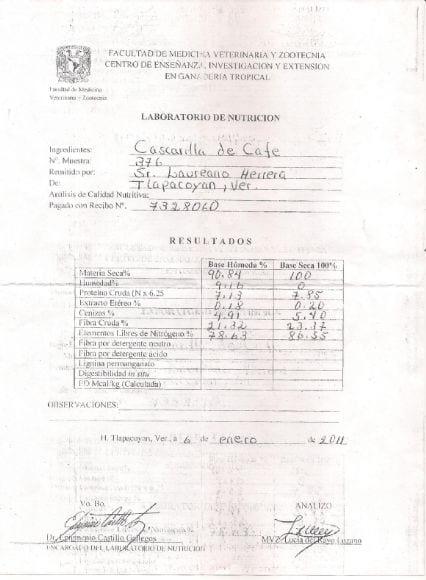 FACULTAD DE MEDICINA VETERINARIA Y ZOOTECNIA
CENTRO DE ENSEÑANZA, INVESTIGACION Y EXTENSION
EN GANADERIA TROPICAL
Facultad de Medicina
Veterinaria y Zootecnia
LABORATORIO DE NUTRICION
Ingredientes: Cascarilla de Cafe
N°. Muestra: 376
Remitido por: Sr. Laureano Herrera
De: Tlapacoyan, Ver.
Análisis de Calidad Nutritiva:
Pagado con Recibo N°. 7328060
RESULTADOS
Base Húmeda % Base Seca 100%
Materia Seca% 90.84 100
Humedad% 9.16 0
Proteína Cruda (N x 6.25 7.13 7.85
Extracto Etéreo % 0.18 0.20
Cenizas % 4.91 5.40
Fibra Cruda % 21.32 23.37
Elementos Libres de Nitrógeno % 78.63 86.55
Fibra por detergente neutro
Fibra por detergente ácido
Lignina permanganato
Digestibilidad in situ
ED Mcal/kg (Calculada)
OBSERVACIONES:
H. Tlapacoyan, Ver., a 6 de enero de 2011
Vo. Bo. ANALIZO
Dr. Epigmenio Castillo Gallegos MVZ. Lucia del Rayo Lozano
ENCARGADO DEL LABORATORIO DE NUTRICION